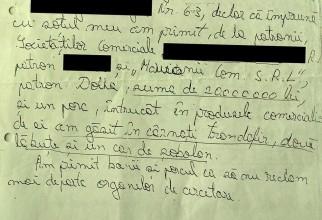 Nr. 63, declar că împreună
cu soțul meu am primit, de la patronii
Societăților Comerciale
patron și "Com. S.R.L.",
patron suma de 20000000 lei,
și un porc, întrucât în produsele comerciali-
de ei am găsit în cârnați trandafir, două
lăbuțe și un cap de șobolan.
Am primit banii și porcul ca să nu reclam
mai departe organelor de cercetare.